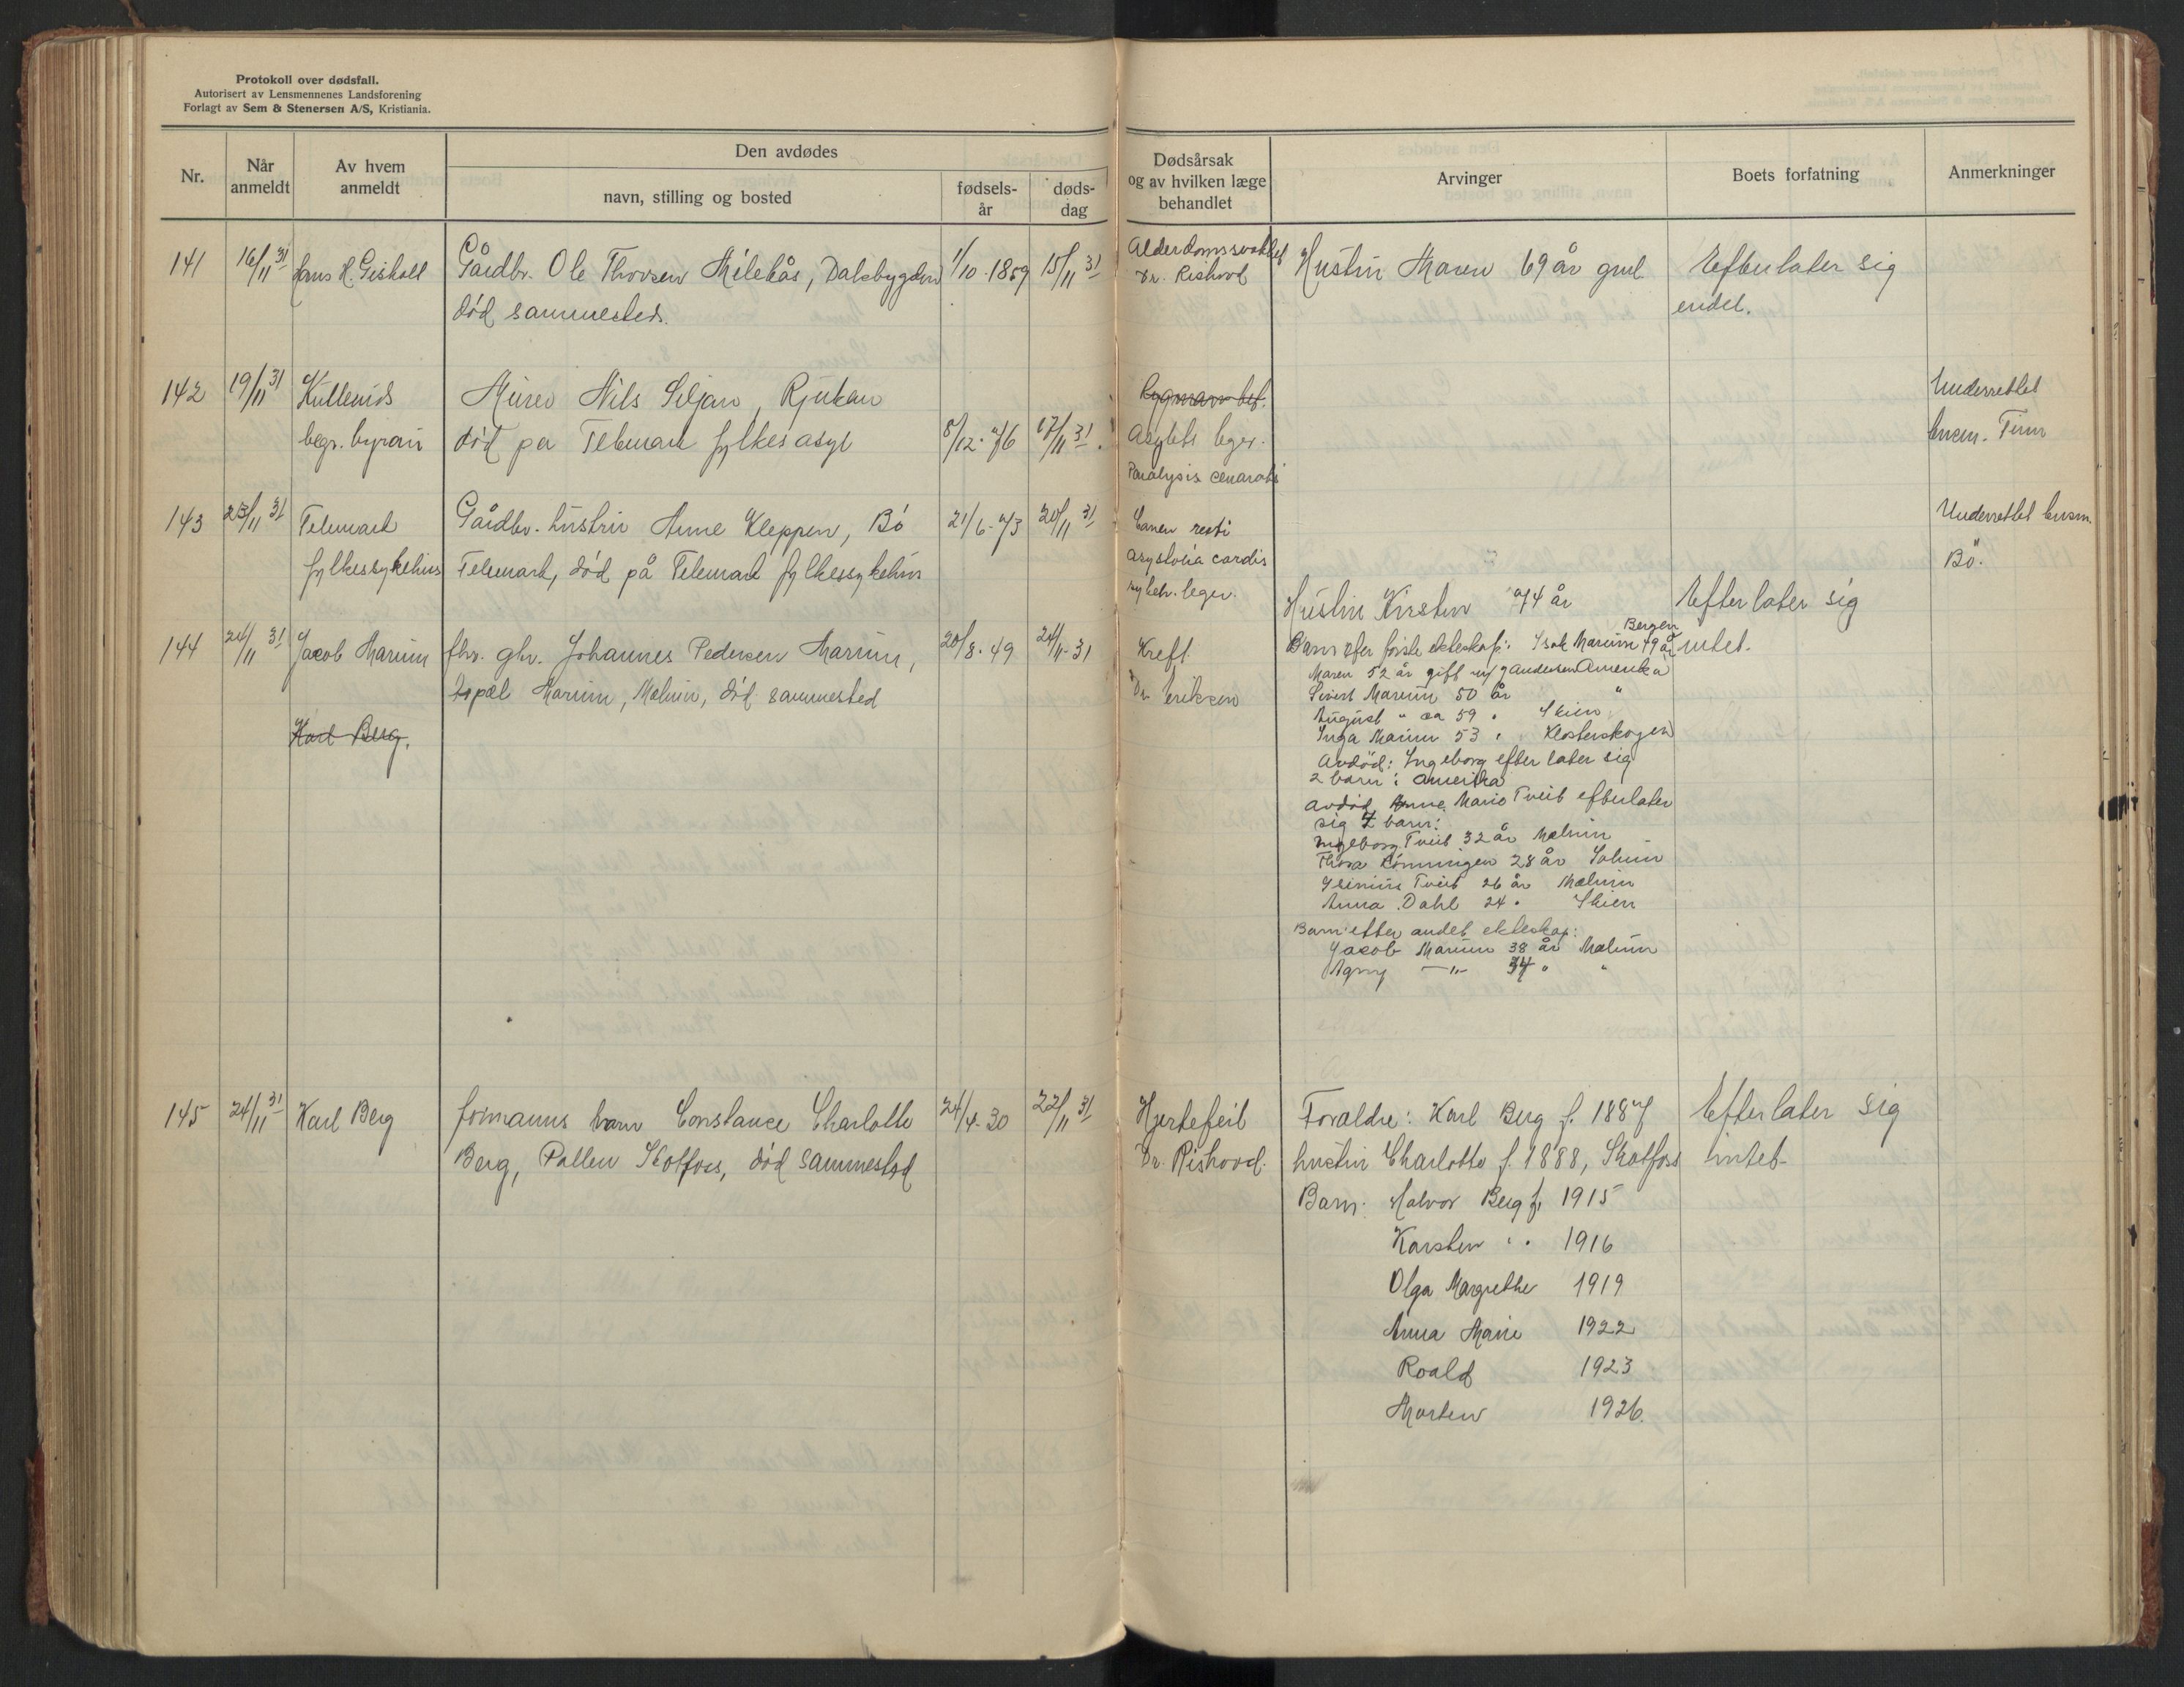 Protokoll over dødsfall.
Autorisert av Lensmennenes Landsforening
Forlagt av Sem & Stenersen A/S, Kristiania.
Nr.
Når anmeldt
Av hvem anmeldt
Den avdødes
navn, stilling og bosted
fødselsår
dødsdag
Dødsårsak og av hvilken læge behandlet
Arvinger
Boets forfatning
Anmerkninger
141 16/11 31 Hans H. Gisholt Gårdbr. Ole Thovsen Milekås, Dalsbygden 1/10-1859 15/11 31
død sammesteds.
Alderdomssvakhet
Dr. Rishovd
Hustru Maren 69 år gml
Efterlater sig
endel.
142 19/11 31 Kittemids Murer Nils Siljan, Rjukan
begr. byrau død på Telemark fylkesasyl 8/12-76 17/11 31.
Asylets leger.
Paralysis
Underrettet
lensm. Tinn
143 23/11 31 Telemark Gårdbr. hustru Anne Kleppen, Bö 21/6-73 20/11 31
fylkessykehus Telemark, död på Telemark fylkessykehus
Cancer recti
asystolia cordis
sykeh. leger.
Underrettet lensm.
Bö.
144 24/11 31 Jacob Marum fhv. gbr. Johannes Pedersen Marum, 20/8-49 24/11-31
Marum, Melum, död sammested
Karl Berg.
Kreft
Dr. Eriksen
Hustru Kirsten 74 år
Barn efter første ekteskap: Isak Marum 49 år Bergen
Maren 52 år gift m/ J Andersen Amerika
Sivert Marum 50 år "
August " ca 59 " Skien
Inga Marum 53 " Klosterskogen
Avdöd: Ingeborg efterlater sig
2 barn i Amerika
Avdöd Anne Marie Tveit efterlater
sig 4 barn:
Ingeborg Tveit 32 år Melum
Thora Rönningen 28 år Solum
Tveit 26 år Melum
Anna Dahl 24 " Skien
Barn efter andet ekteskap:
Jacob Marum 38 år Melum
Agny —"— 34 " "
Efterlater sig
intet.
145 24/11 31 Karl Berg formanns barn Constance Charlotte 24/4-30 22/11 31
Berg, Pollen Skotfoss, död sammested
Hjertefeil
Dr. Rishovd.
Foraldre: Karl Berg f. 1887
hustru Charlotte f. 1888, Skotfoss
Barn: Halvor Berg f. 1915
Karsten " " 1916
Olga Margrethe 1919
Anna Marie 1922
Roald 1923
Morten 1926.
Efterlater sig
intet.